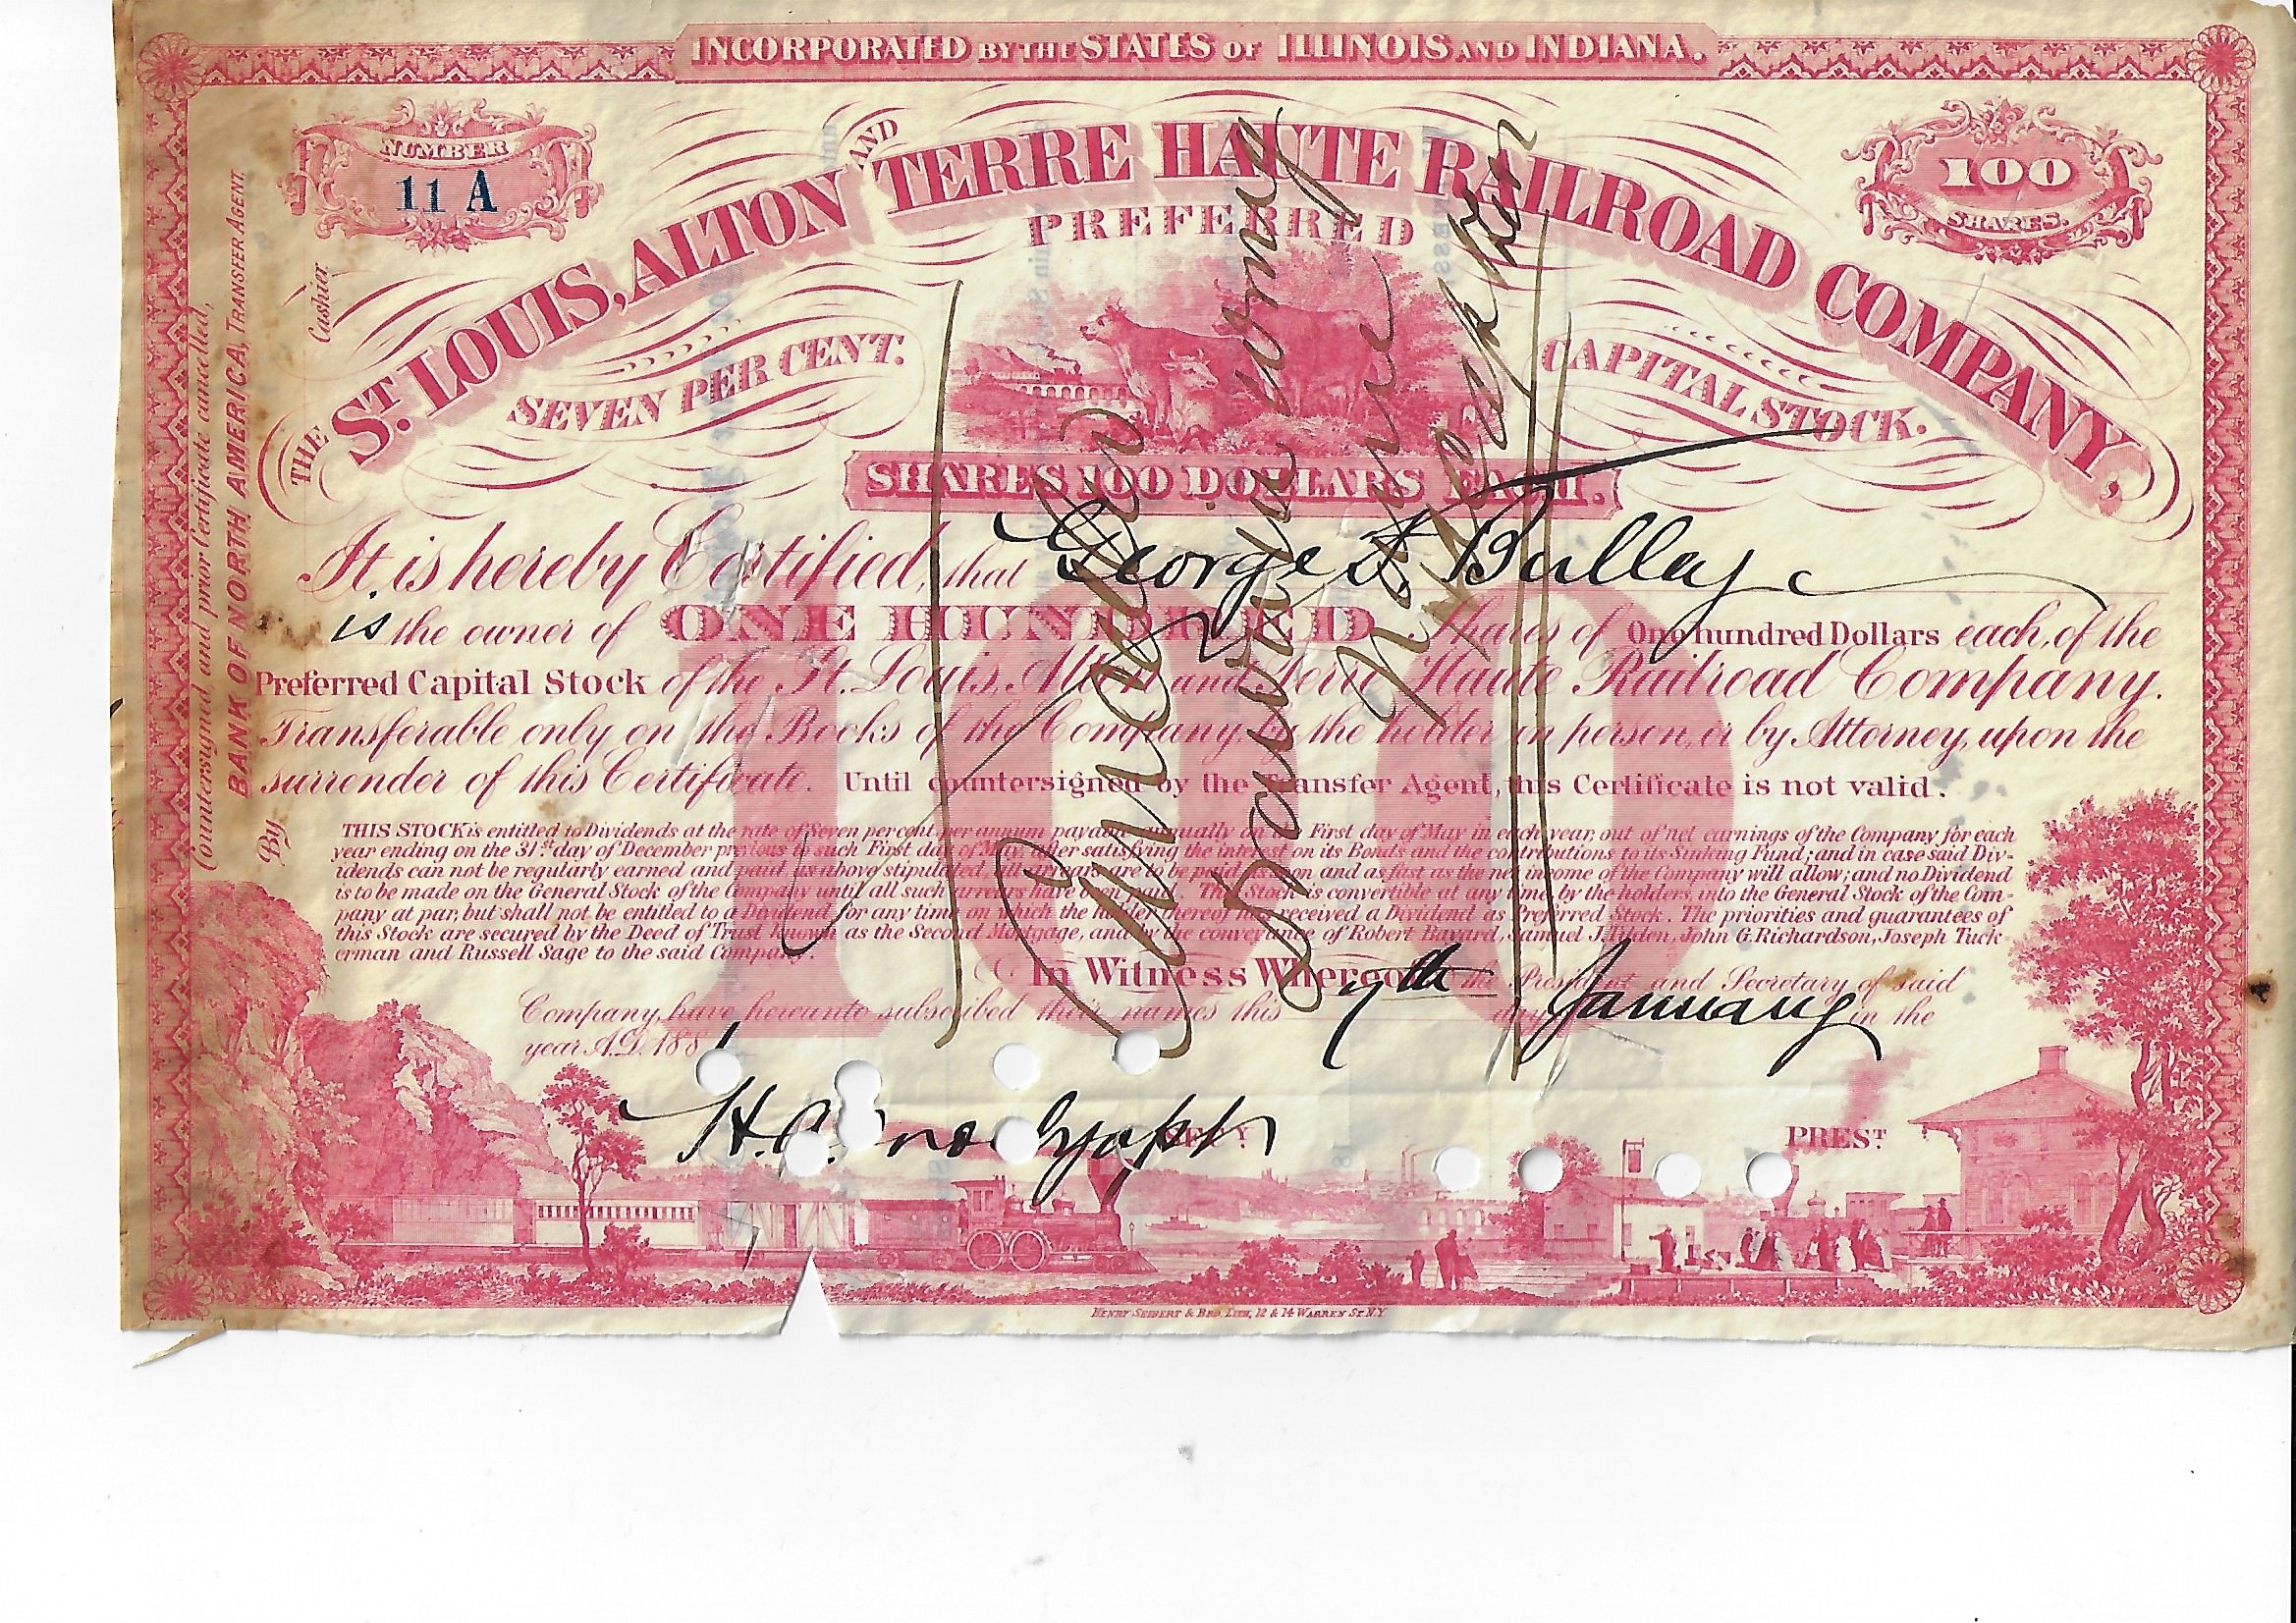 INCORPORATED BY THE STATES OF ILLINOIS AND INDIANA.
NUMBER
11 A
100
SHARES.
THE ST. LOUIS, ALTON AND TERRE HAUTE RAILROAD COMPANY,
PREFERRED
SEVEN PER CENT. CAPITAL STOCK.
SHARES 100 DOLLARS EACH.
It is hereby Certified, that George
is the owner of ONE HUNDRED Shares of One hundred Dollars each, of the
Preferred Capital Stock of the St. Louis, Alton and Terre Haute Railroad Company.
Transferable only on the Books of the Company, by the holder in person, or by Attorney, upon the
surrender of this Certificate. Until countersigned by the Transfer Agent, this Certificate is not valid.
100
THIS STOCK is entitled to Dividends at the rate of Seven per cent. per annum payable annually on the First day of May in each year, out of net earnings of the Company for each
year ending on the 31st day of December previous to such First day of May, after satisfying the interest on its Bonds and the contributions to its Sinking Fund; and in case said Div-
idends can not be regularly earned and paid as above stipulated, all arrears are to be paid upon and as fast as the net income of the Company will allow; and no Dividend
is to be made on the General Stock of the Company until all such arrears have been paid. This Stock is convertible at any time by the holders, into the General Stock of the Com-
pany at par, but shall not be entitled to a Dividend for any time on which the holder thereof has received a Dividend as Preferred Stock. The priorities and guarantees of
this Stock are secured by the Deed of Trust known as the Second Mortgage, and by the conveyance of Robert Bayard, Samuel J. Tilden, John G. Richardson, Joseph Tuck-
erman and Russell Sage to the said Company.
In Witness Whereof the President and Secretary of said
Company, have hereunto subscribed their names this 7th day January in the
year A.D. 188
SEC'Y
PREST
Countersigned and prior Certificate cancelled,
BANK OF NORTH AMERICA, TRANSFER AGENT.
By Cashier
Cancelled
HENRY SEIBERT & BRO. LITH, 12 & 14 WARREN ST. N.Y.